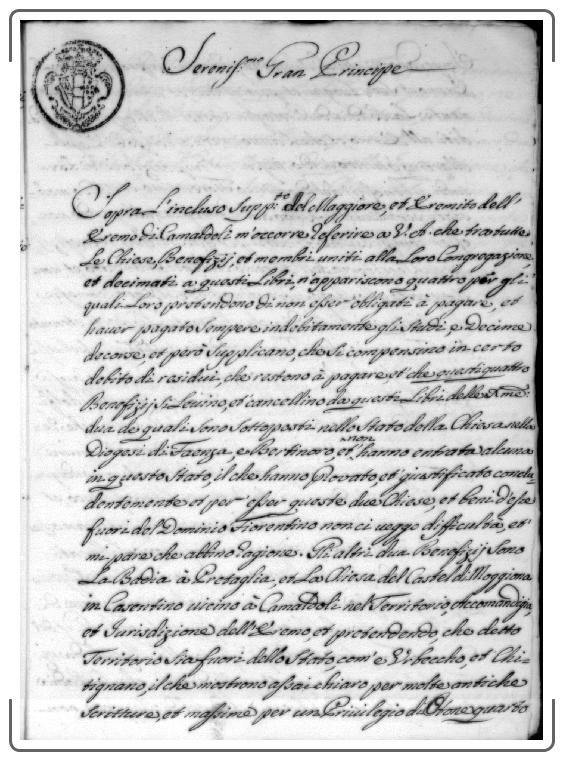 Serenis.mo Gran Principe
Sopra L'incluso Supp.to del Maggiore, et Eremito dell'
Eremo di Camaldoli m'occorre referire a V.A. che tra tutte
Le Chiese, Benefizij, et membri uniti alla Loro Congregazione,
et decimati a questi Libri, n'appariscono quattro per gli
quali Loro pretendono di non esser obligati à pagare, et
haver pagato sempre indebitamente gli Staldi e Decime
decorse, et però supplicano, che si compensino in certo
debito di residui, che restono à pagare, et che questi quattro
Benefizij si Levino, et cancellino da questi Libri delle x.me:
dua de quali sono sottoposti nello Stato della Chiesa nella
Diogesi di Faenza, e Bertinoro, et non hanno entrata alcuna
in questo Stato, il che hanno provato, et giustificato conclu-
dentemente et per esser queste due Chiese, et beni d'esse
fuori del Dominio Fiorentino non ci vegge difficultà, et
mi pare che abbino ragione. Gli altri dua Benefizij sono
La Badia à Pretaglia, et La Chiesa del Castel di Moggiona
in Casentino vicino à Camaldoli nel Territorio, Accomandigia,
et Jurisdizione dell'Eremo, et pretendendo che detto
Territorio sia fuori dello Stato, com'è Urbeccho, et Chi-
tignano, il che mostrono assai chiaro per molte antiche
scritture, et massime per un Privilegio di Otone quarto